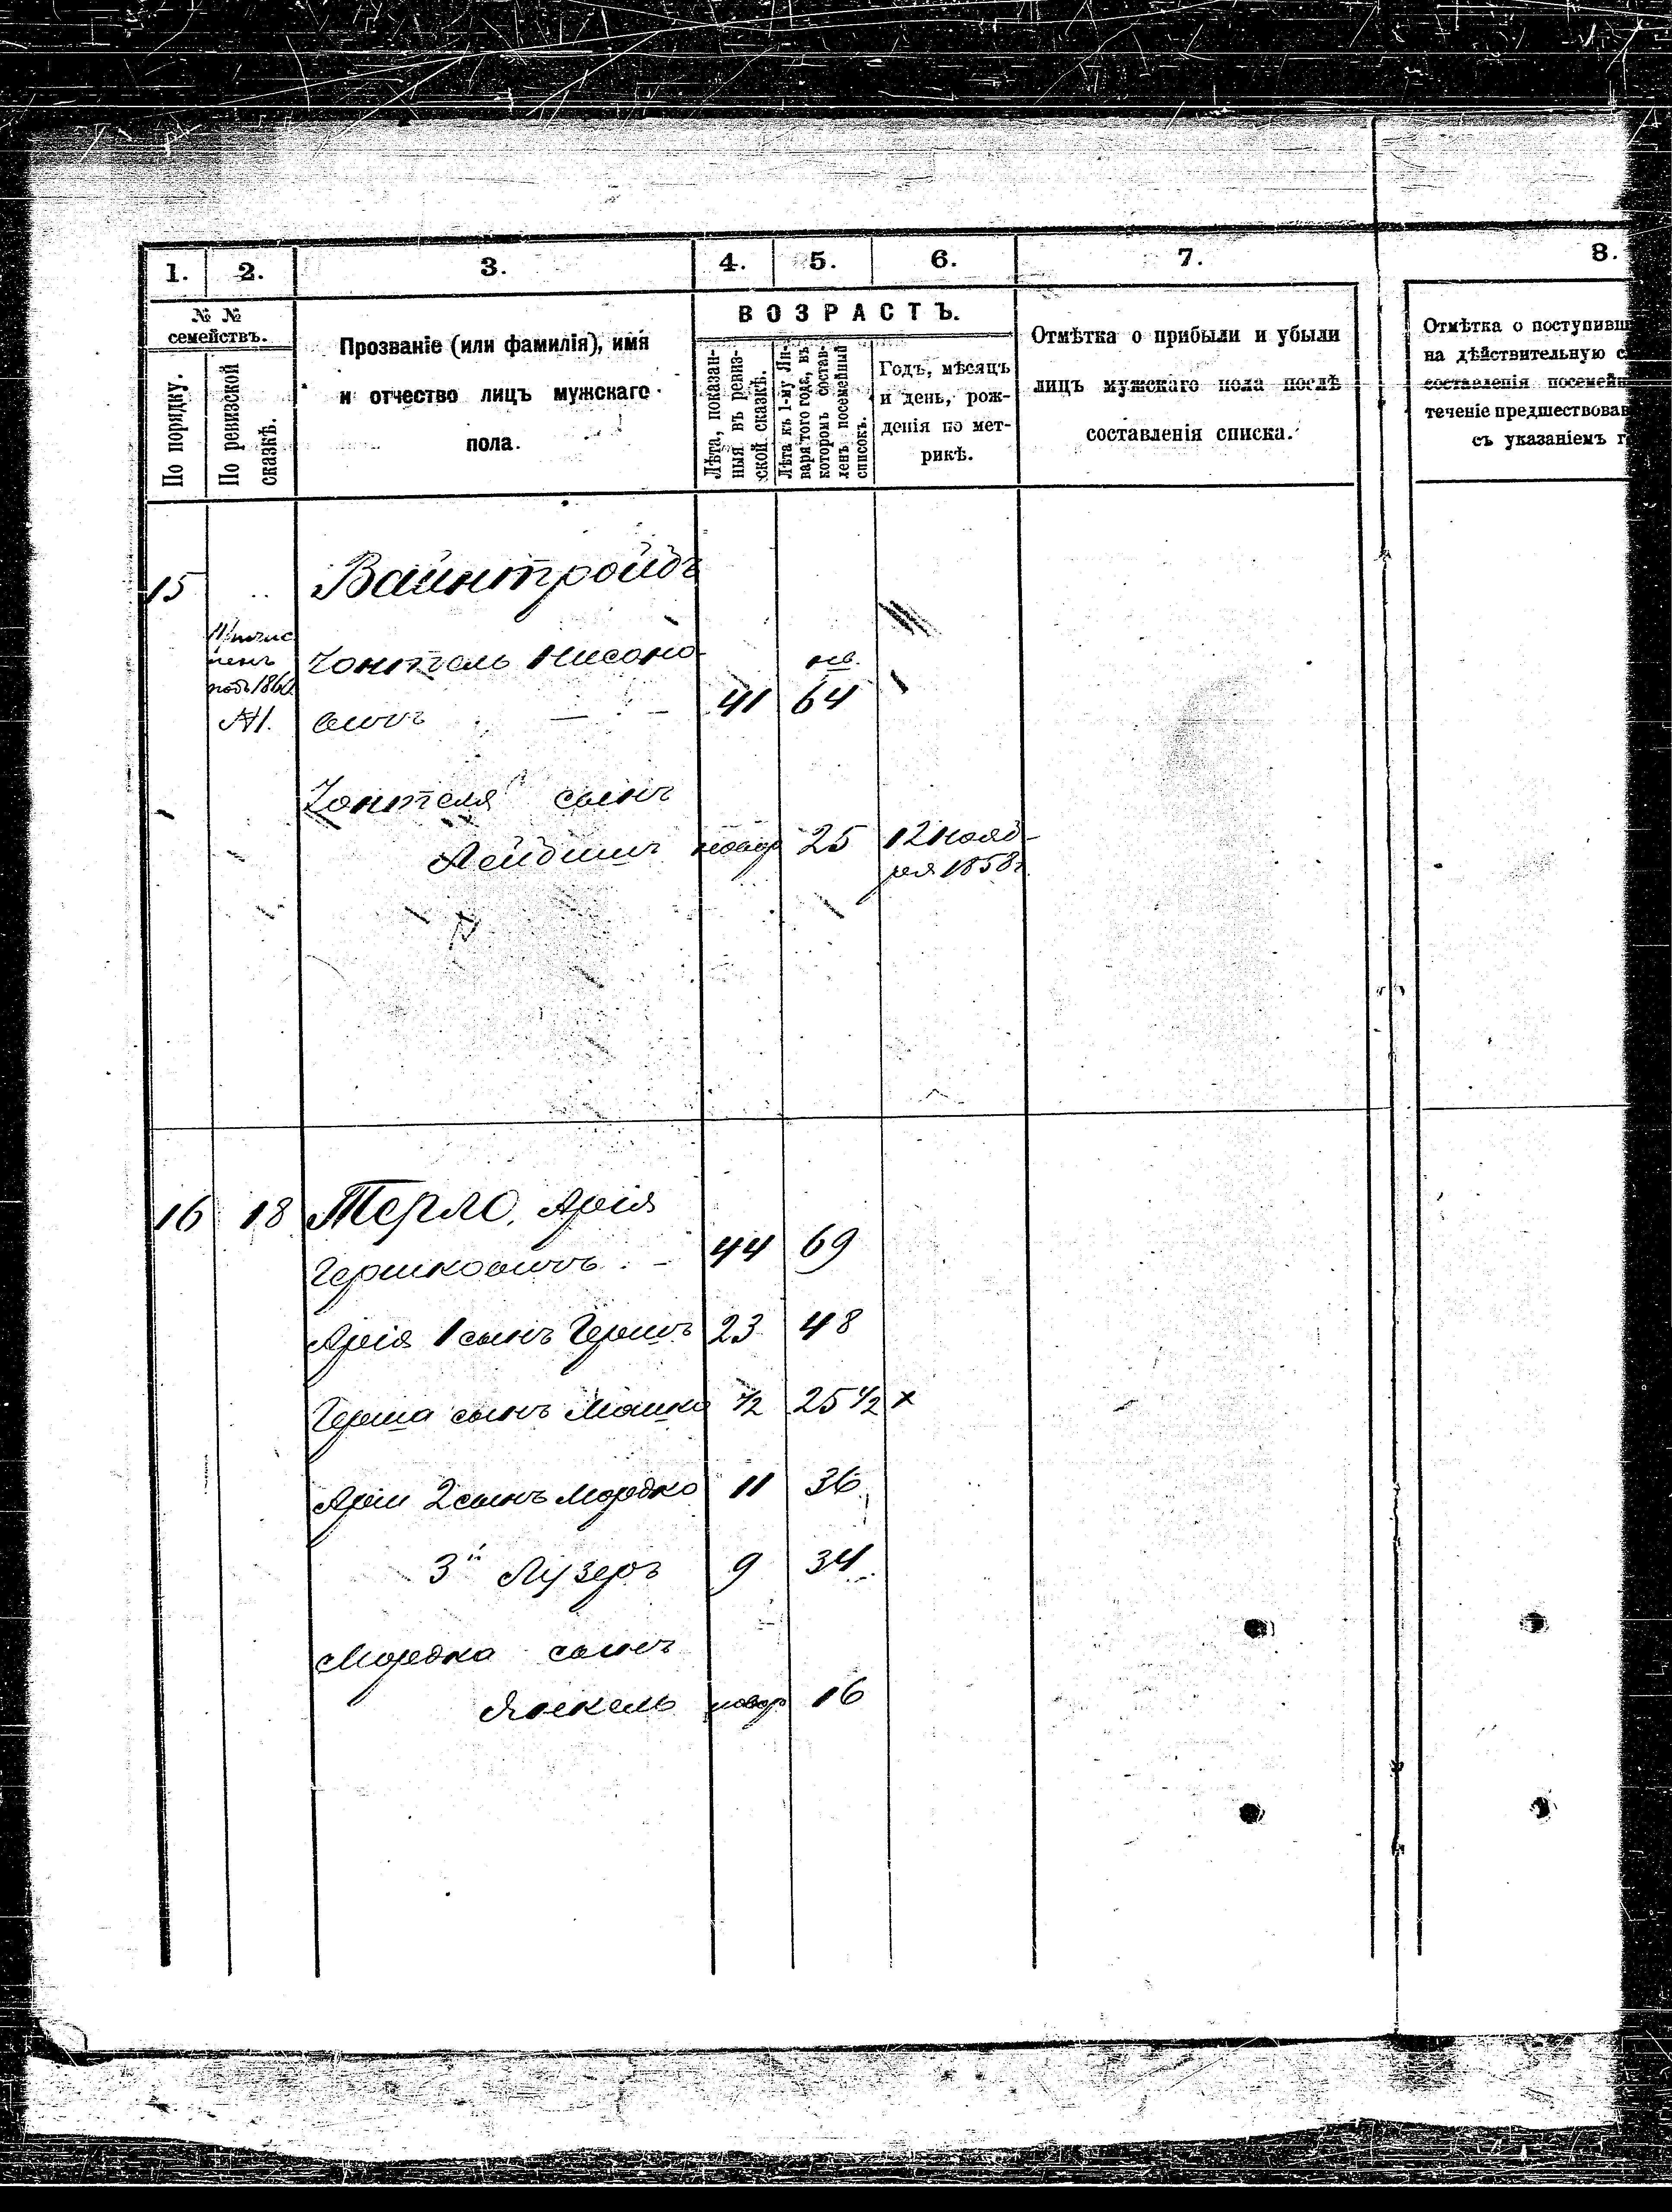 1. 2. 3. 4. 5. 6. 7. 8.
№ №
семействъ.
По порядку.
По ревизской
сказкѣ.
Прозваніе (или фамилія), имя
и отчество лицъ мужскаго
пола.
ВОЗРАСТЪ.
Лѣта, показан-
ныя въ ревиз-
ской сказкѣ.
Лѣта къ 1-му Ян-
варя того года, въ
которомъ состав-
ленъ посемейный
списокъ.
Годъ, мѣсяцъ
и день, рож-
денія по мет-
рикѣ.
Отмѣтка о прибыли и убыли
лицъ мужскаго пола послѣ
составленія списка.
Отмѣтка о поступивш
на дѣйствительную с
составленія посемейн
теченіе предшествовав
съ указаніемъ г
15 Вайнтройбъ
Нисоно-
вичъ 41 64
сынъ
Лейбишъ новор 25 12 нояб-
ря 1858г.
16 18 Терло, Арія
Гершковичъ 44 69
Арія 1 сынъ Гершъ 23 48
Герша сынъ Мошко 1/2 25 1/2 x
Аріи 2 сынъ Мордко 11 36
3й Лузеръ 9 34
Мордка сынъ
Янкель новор 16